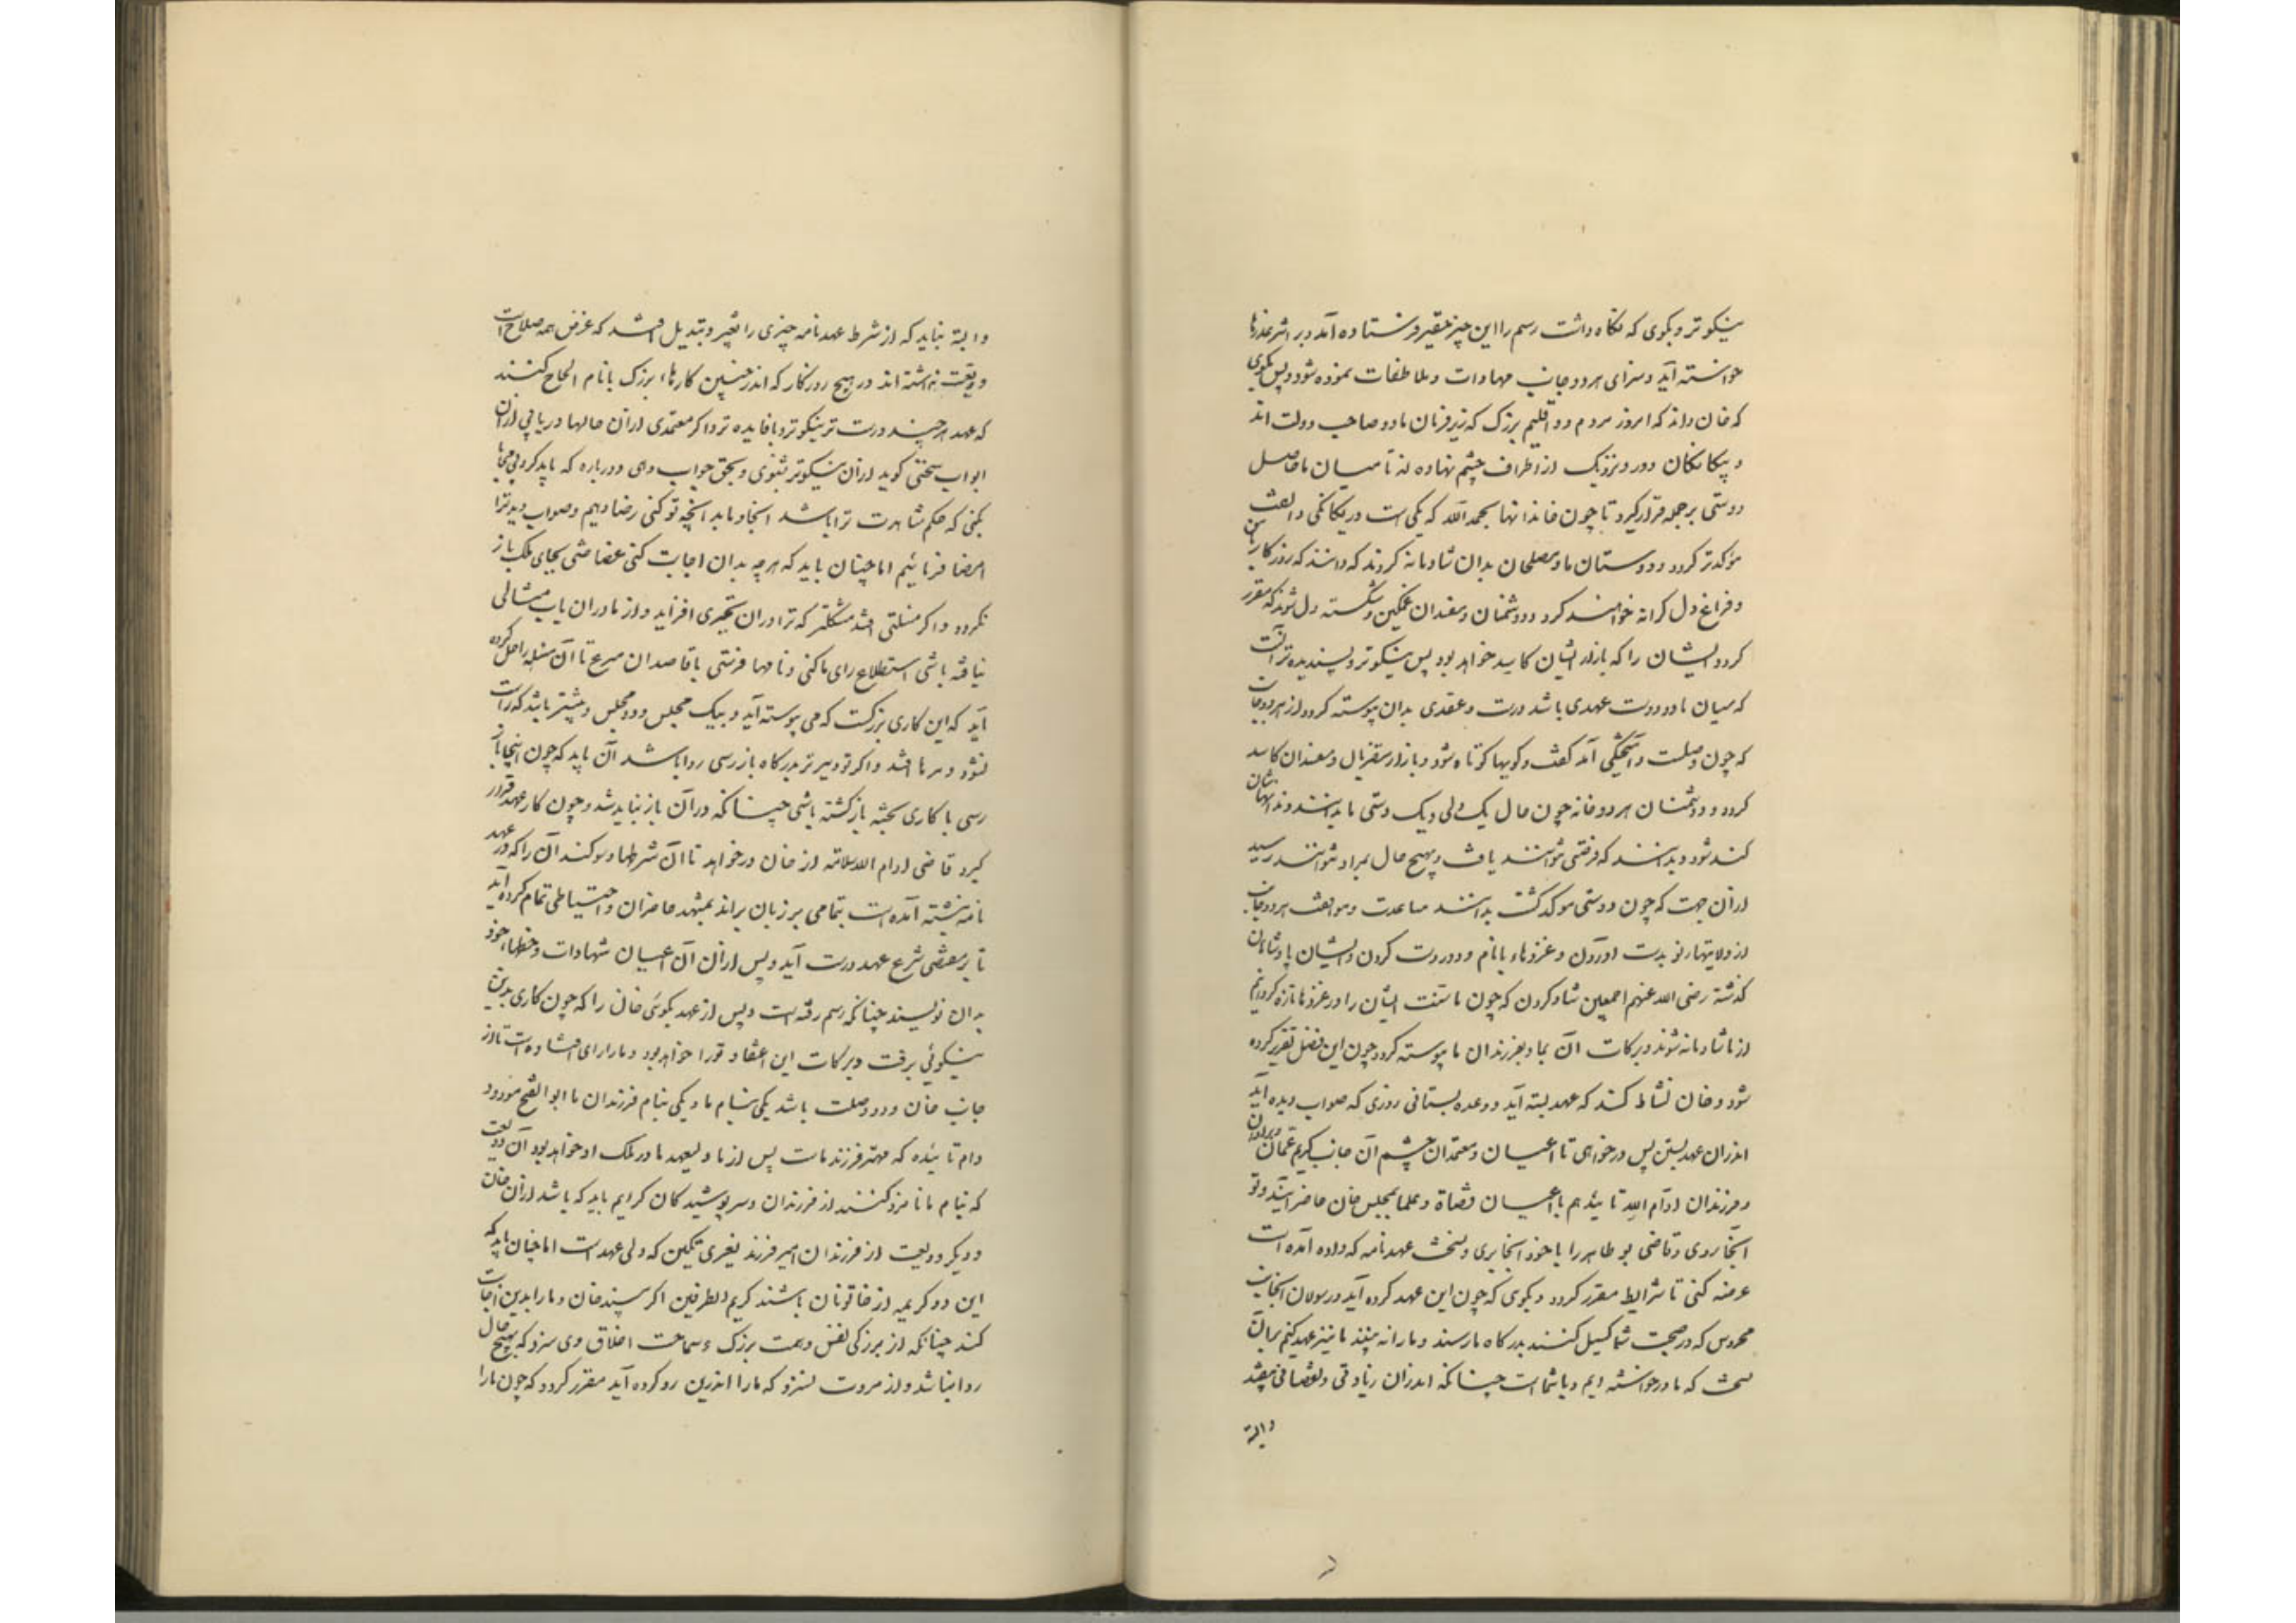 نیکوتر و بکوی که نکاه داشت رسم را این چیز حقیر فرستاده آمد و بر اثر عذرها
خواسته آید و سزای هر دو جانب مهادات و ملاطفات نموده شود و پس بکوی
که خان داند که امروز مردم دو اقلیم بزرک که زیر فرمان ما دو صاحب دولت اند
و بیکانکان دور و نزدیک از اطراف چشم نهاده اند تا میان ما حاصل
دوستی بر جمله قرار کیرد تا چون خاندانها بحمد الله که یکی است در یکانکی و الفت
مؤکدتر کردد و دوستان ما و مصلحان بدان شادمانه کردند که دانند که روزکار با من
و فراغ دل کرانه خواهند کرد و دشمنان و مفسدان غمکین و شکسته دل شوند که مقرر
کردد ایشان را که بازار ایشان کاسد خواهد بود پس نیکوتر و پسندیده تر آنست
که میان ما دو دوست عهدی باشد درست و عقدی بدان پیوسته کردد از هر دو جانب
که چون وصلت و آمیختکی آمد کفت و کویها کوتاه شود و بازار مضربان و مفسدان کاسد
کردد و دشمنان هر دو خانه چون حال یک دلی و یک دستی ما بدانند دندانهاشان
کند شود و بدانند که فرصتی نتوانند یافت و بهیچ حال بمراد نتوانند رسید
از آن جهت که چون دوستی موکد کشت بدانند مساعدت و موافقت هر دو جانب
از ولایتها نو بدست اوردن و غزوهاء بانام و دور دست کردن و ایشان پادشاهان
کذشته رضی الله عنهم اجمعین شاد کردن که چون ما سنت ایشان را در غزوها تازه کردانیم
از ما شادمانه شوند و برکات آن بما و بفرزندان ما پیوسته کردد چون این فصل تقریر کرده
شود و خان نشاط کند که عهد بسته آید و وعده بستانی روزی که صواب دیده آید
اندران عهد بستن پس درخواهی تا اعیان و معتمدان حشم آن جانب کریم عمان و برادران
و فرزندان ادام الله تائیدهم با اعیان قضاة و علما بمجلس خان حاضر آیند و تو
آنجا روی و قاضی بو طاهر را با خود آنجا بری و نسخت عهدنامه که داده آمده است
عرضه کنی تا شرایط مقرر کردد و بکوی که چون این عهد کرده آید و رسولان آنجانب
محروس که در صحبت شما کسیل کنند بدرکاه ما رسند و ما را نه بینند ما نیز عهد کنیم بر آن
نسخت که ما درخواسته ایم و با شما است چنانکه اندران زیادتی و نقصانی نیفتد
والبته
والبته نباید که از شرط عهدنامه چیزی را تغییر و تبدیل افتد که غرض همه صلاح است
و وقیعت نداشته اند در هیچ روزکار که اندر چنین کارها، بزرک بانام الحاح کنند
که عهد هر چند درست تر نیکوتر و بافایده تر و اکر معتمدی از ان حالها دریابی از ان
ابواب سخنی کوید از ان نیکوتر بشنوی و بحق جواب دهی و درباره که باید کرد بی محابا
بکنی که حکم مشاهدت ترا باشد آنجا و ما بد آنچه تو کنی رضا دهیم و صواب دید ترا
امضا فرمائیم اما چنان باید که هر چه بدان اجابت کنی غضاضتی بجای ملک باز
نکردد و اکر مسئلتی افتد مشکلتر که ترا دران تحیری افزاید و از ما دران باب مثالی
نیافته باشی استطلاع رای ما کنی و نامها فرستی با قاصدان مسرع تا آن مسئله را حل کرده
آید که این کاری بزرکست که می پیوسته آید و بیک مجلس و دو مجلس و بیشتر باشد که راست
نشود و سر ما افتد و اکر تو دیرتر بدرکاه باز رسی روا باشد آن باید که چون اینجا باز
رسی با کاری پخته بازکشته باشی چنانکه در آن باز نباید شد و چون کار عهد قرار
کیرد قاضی ادام الله سلامته از خان درخواهد تا آن شرطها و سوکند آن را که در عهد
نامه نبشته آمده است بتمامی بر زبان براند بمشهد حاضران و احتیاطی تمام کرده آید
تا بر مقتضی شرع عهد درست آید و پس از ان آن اعیان شهادات و خطها، خود
بدان نویسند چنانکه رسم رفته است و پس از عهد بکوئی خان را که چون کاری بدین
نیکوئی برفت و برکات این اعقاد تو را خواهد بود و ما را رای افتاده است تا از
جانب خان دو وصلت باشد یکی بنام ما و یکی بنام فرزندان ما ابو الفتح مودود
دام تائیده که مهتر فرزند ماست پس از ما ولیعهد ما در ملک او خواهد بود آن ودیعت
که بنام ما نامزد کنند از فرزندان و سرپوشیدکان کرایم باید که باشد از ان خان
و دیکر ودیعت از فرزندان امیر فرزند بغری تکین که ولی عهد است اما چنان باید که
این دو کریمه از خاتونان باشند کریم الطرفین اکر بیند خان و ما را بدین اجابت
کند چنانکه از بزرکی نفس و همت بزرک و سماحت اخلاق وی سزد که بهیچ حال
روا نباشد و از مروت نسزد که ما را اندرین رد کرده آید مقرر کردد که چون ما را